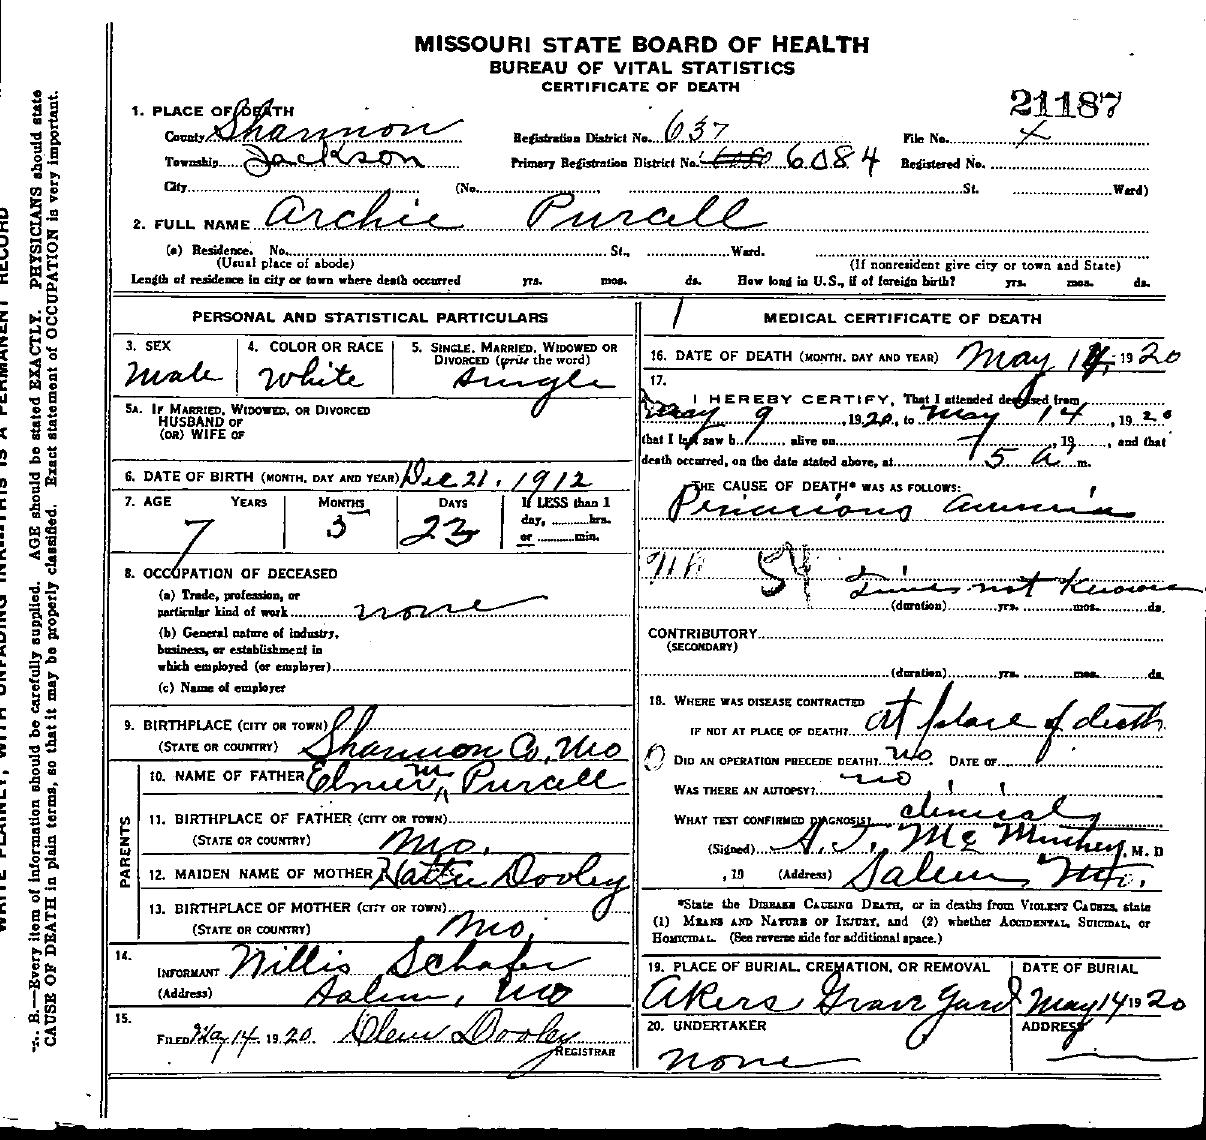 MISSOURI STATE BOARD OF HEALTH
BUREAU OF VITAL STATISTICS
CERTIFICATE OF DEATH
21187
1. PLACE OF DEATH
County Shannon Registration District No. 637 File No.
Township Jackson Primary Registration District No. 6084 Registered No.
City (No. St. Ward)
2. FULL NAME Archie Purcell
(a) Residence. No. St., Ward.
(Usual place of abode) (If nonresident give city or town and State)
Length of residence in city or town where death occurred yrs. mos. ds. How long in U.S., if of foreign birth? yrs. mos. ds.
PERSONAL AND STATISTICAL PARTICULARS
3. SEX 4. COLOR OR RACE 5. SINGLE, MARRIED, WIDOWED OR
DIVORCED (write the word)
Male White Single
5A. IF MARRIED, WIDOWED, OR DIVORCED
HUSBAND OF
(OR) WIFE OF
6. DATE OF BIRTH (MONTH, DAY AND YEAR) Dec 21, 1912
7. AGE YEARS MONTHS DAYS If LESS than 1
day, hrs.
or min.
7 5 23
8. OCCUPATION OF DECEASED
(a) Trade, profession, or
particular kind of work none
(b) General nature of industry,
business, or establishment in
which employed (or employer)
(c) Name of employer
9. BIRTHPLACE (CITY OR TOWN)
(STATE OR COUNTRY) Shannon Co, Mo
PARENTS
10. NAME OF FATHER Elmer M Purcell
11. BIRTHPLACE OF FATHER (CITY OR TOWN)
(STATE OR COUNTRY) Mo.
12. MAIDEN NAME OF MOTHER Hattie Dooley
13. BIRTHPLACE OF MOTHER (CITY OR TOWN)
(STATE OR COUNTRY) Mo.
14.
INFORMANT Willis Schafer
(Address) Salem, Mo
15.
FILED May 14 1920. Olen Dooley
REGISTRAR
1 MEDICAL CERTIFICATE OF DEATH
16. DATE OF DEATH (MONTH, DAY AND YEAR) May 14, 1920
17.
I HEREBY CERTIFY, That I attended deceased from
May 9, 1920, to May 14, 1920
that I last saw h alive on , 19 , and that
death occurred, on the date stated above, at 5 a m.
THE CAUSE OF DEATH* WAS AS FOLLOWS:
Pernicious anemia
54 Time not known
(duration) yrs. mos. ds.
CONTRIBUTORY
(SECONDARY)
(duration) yrs. mos. ds.
18. WHERE WAS DISEASE CONTRACTED
IF NOT AT PLACE OF DEATH? at place of death
DID AN OPERATION PRECEDE DEATH? no DATE OF
WAS THERE AN AUTOPSY? no
WHAT TEST CONFIRMED DIAGNOSIS? clinical
(Signed) , M. D
, 19 (Address) Salem, Mo.
*State the DISEASE CAUSING DEATH, or in deaths from VIOLENT CAUSES, state
(1) MEANS AND NATURE OF INJURY, and (2) whether ACCIDENTAL, SUICIDAL, or
HOMICIDAL. (See reverse side for additional space.)
19. PLACE OF BURIAL, CREMATION, OR REMOVAL DATE OF BURIAL
Akers Grave Yard May 14 1920
20. UNDERTAKER ADDRESS
none
N. B.—Every item of information should be carefully supplied. AGE should be stated EXACTLY. PHYSICIANS should state
CAUSE OF DEATH in plain terms, so that it may be properly classified. Exact statement of OCCUPATION is very important.